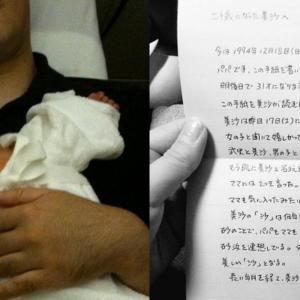 二十歳になった美沙へ
今は1994年12月18日(日
パパです。この手紙を書い
明後日で31才になりま
この手紙を美沙が読む
美沙は昨日17日(土)に
女の子と聞いて嬉しかっ
と美沙、男の子と
もう既に美沙と
ママにはこっそり言った。
ママも気に入ったみたい
美沙の「沙」は
砂のことで、パパもママも
砂浜を連想している。
美しい「沙」となる。
長い白日を経て、美沙